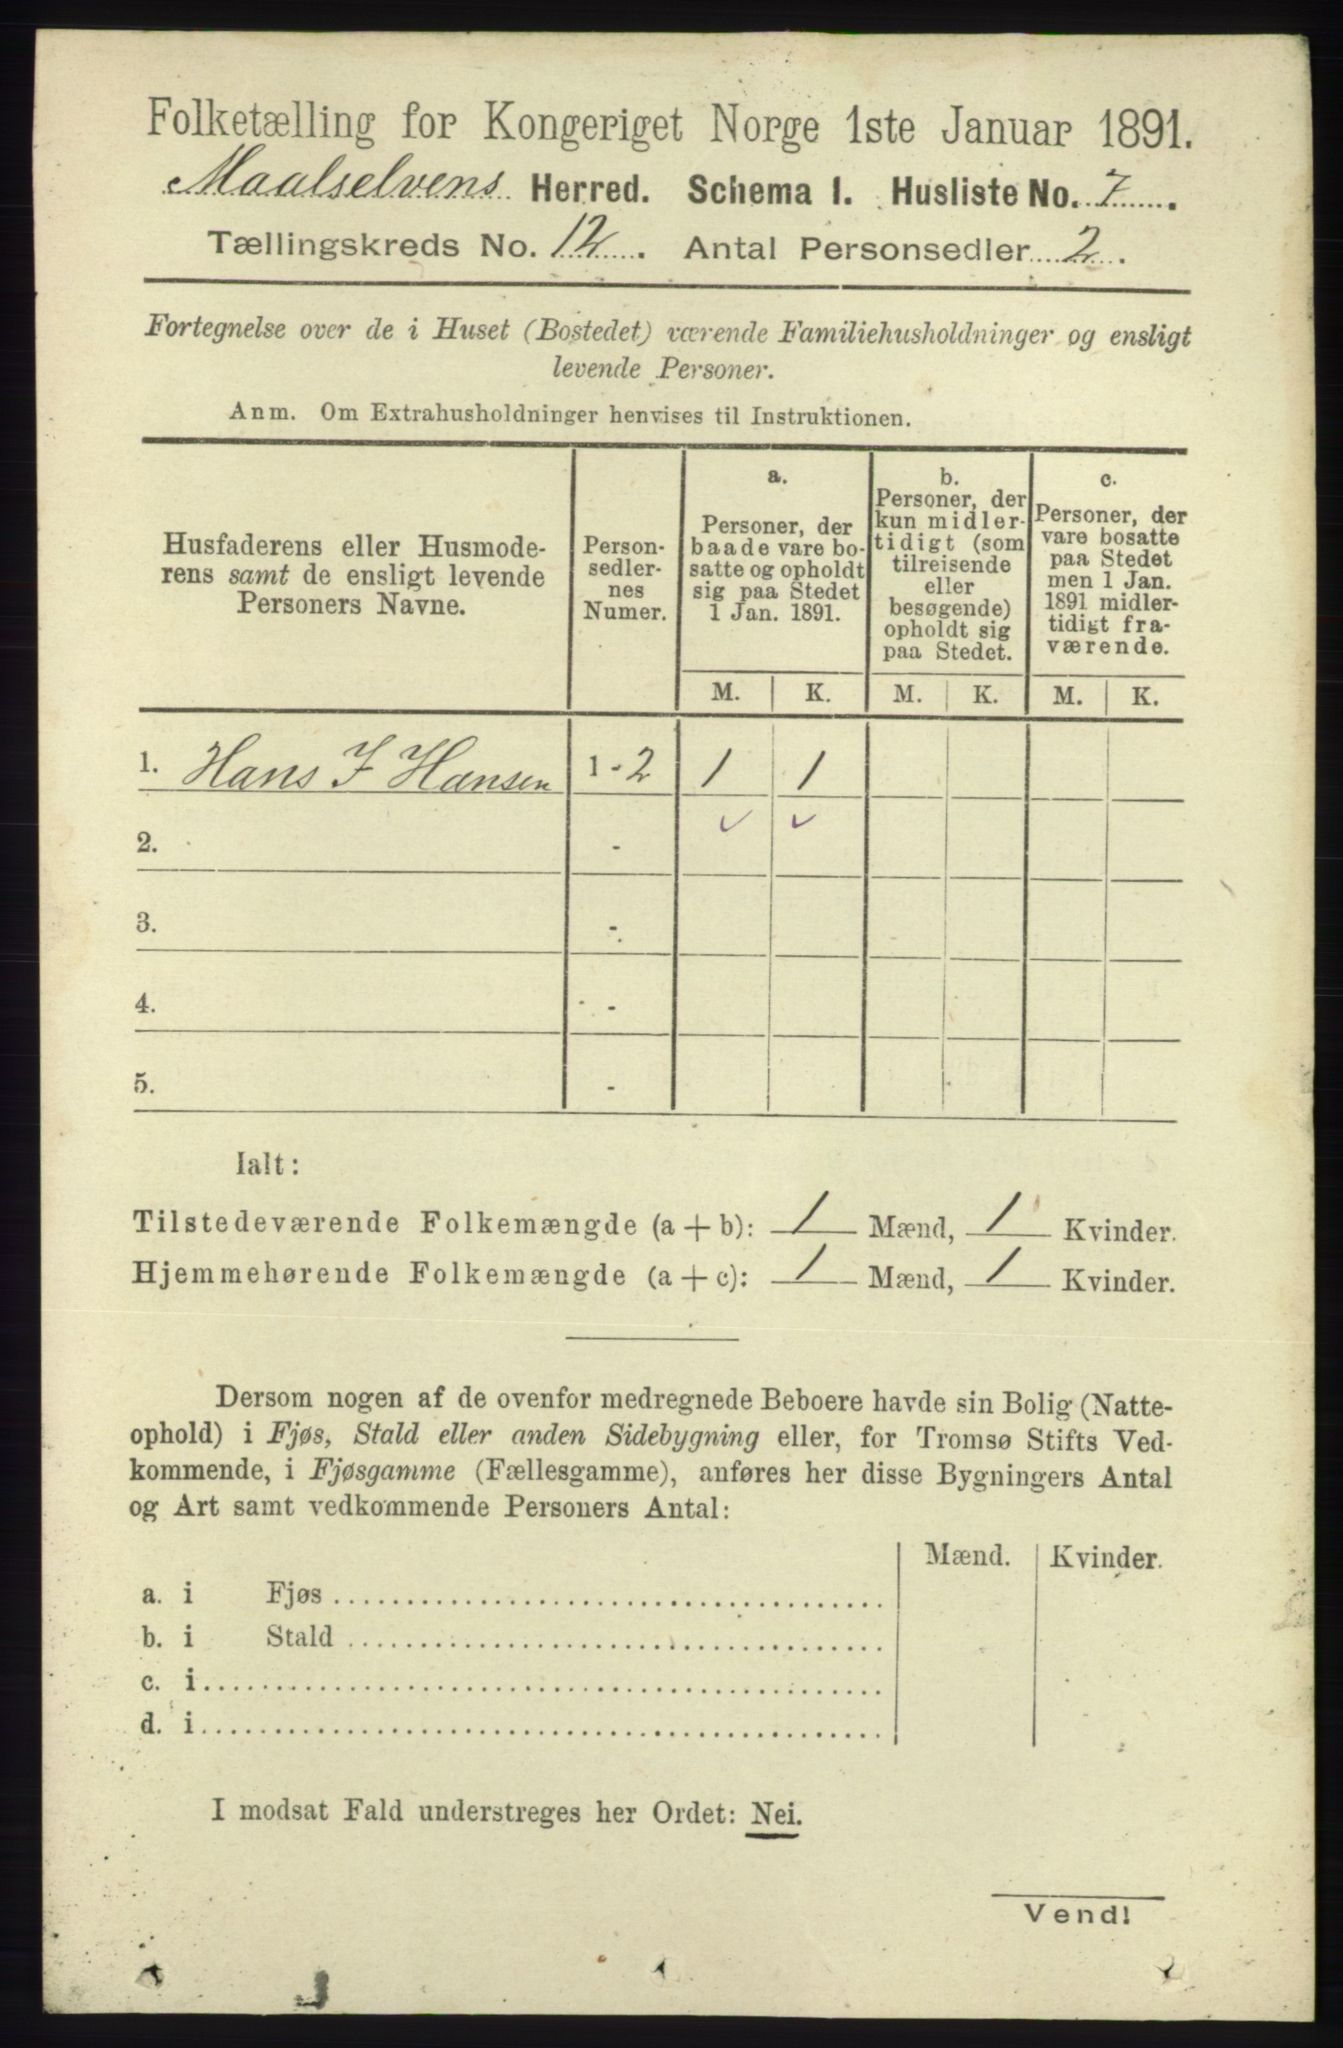 Folketælling for Kongeriget Norge 1ste Januar 1891.
Maalselvens Herred. Schema 1. Husliste No. 7.
Tællingskreds No. 12. Antal Personsedler 2.
Fortegnelse over de i Huset (Bostedet) værende Familiehusholdninger og ensligt
levende Personer.
Anm. Om Extrahusholdninger henvises til Instruktionen.
Husfaderens eller Husmode-
rens samt de ensligt levende
Personers Navne.
Person-
sedler-
nes
Numer.
a.
Personer, der
baade vare bo-
satte og opholdt
sig paa Stedet
1 Jan. 1891.
b.
Personer, der
kun midler-
tidigt (som
tilreisende
eller
besøgende)
opholdt sig
paa Stedet.
c.
Personer, der
vare bosatte
paa Stedet
men 1 Jan.
1891 midler-
tidigt fra-
værende.
M. K. M. K. M. K.
1. Hans J Hansen 1-2 1 1
2. -
3. -
4. -
5. -
Ialt:
Tilstedeværende Folkemængde (a + b): 1 Mænd, 1 Kvinder.
Hjemmehørende Folkemængde (a + c): 1 Mænd, 1 Kvinder.
Dersom nogen af de ovenfor medregnede Beboere havde sin Bolig (Natte-
ophold) i Fjøs, Stald eller anden Sidebygning eller, for Tromsø Stifts Ved-
kommende, i Fjøsgamme (Fællesgamme), anføres her disse Bygningers Antal
og Art samt vedkommende Personers Antal:
Mænd. Kvinder.
a. i Fjøs
b. i Stald
c. i
d. i
I modsat Fald understreges her Ordet: Nei.
Vend!